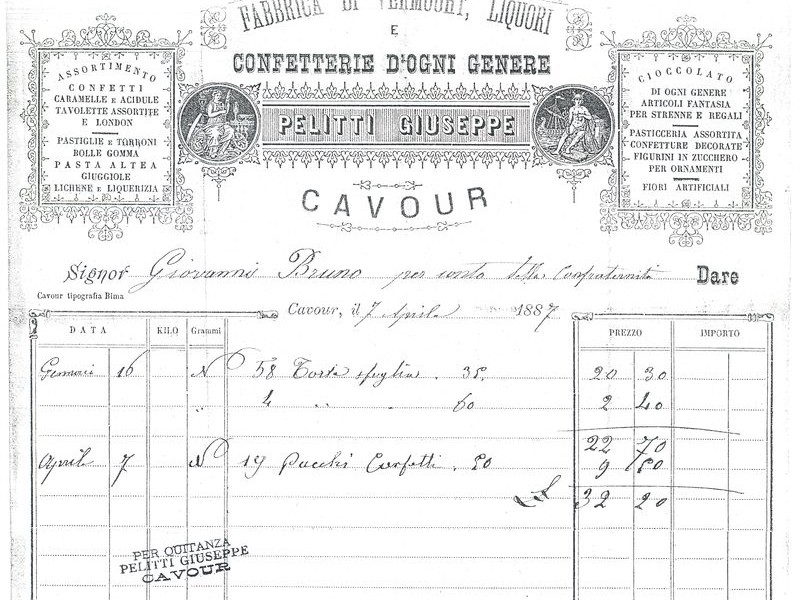 FABBRICA DI VERMOUHT, LIQUORI
E
CONFETTERIE D'OGNI GENERE
PELITTI GIUSEPPE
CAVOUR
ASSORTIMENTO
CONFETTI
CARAMELLE E ACIDULE
TAVOLETTE ASSORTITE
E LONDON
PASTIGLIE E TORRONI
BOLLE GOMMA
PASTA ALTEA
GIUGGIOLE
LICHENE E LIQUERIZIA
CIOCCOLATO
DI OGNI GENERE
ARTICOLI FANTASIA
PER STRENNE E REGALI
PASTICCERIA ASSORTITA
CONFETTURE DECORATE
FIGURINI IN ZUCCHERO
PER ORNAMENTI
FIORI ARTIFICIALI
Signor Giovanni Bruno per conto della Confraternita Dare
Cavour tipografia Bima
Cavour, il 7 Aprile 1887
DATA KILO Grammi PREZZO IMPORTO
16 N 58 Torta sfoglia . 35 20 30
" 4 " " 60 2 40
22 70
Aprile 7 N 19 Pacchi Confetti . 50 9 50
32 20
PER QUITANZA
PELITTI GIUSEPPE
CAVOUR